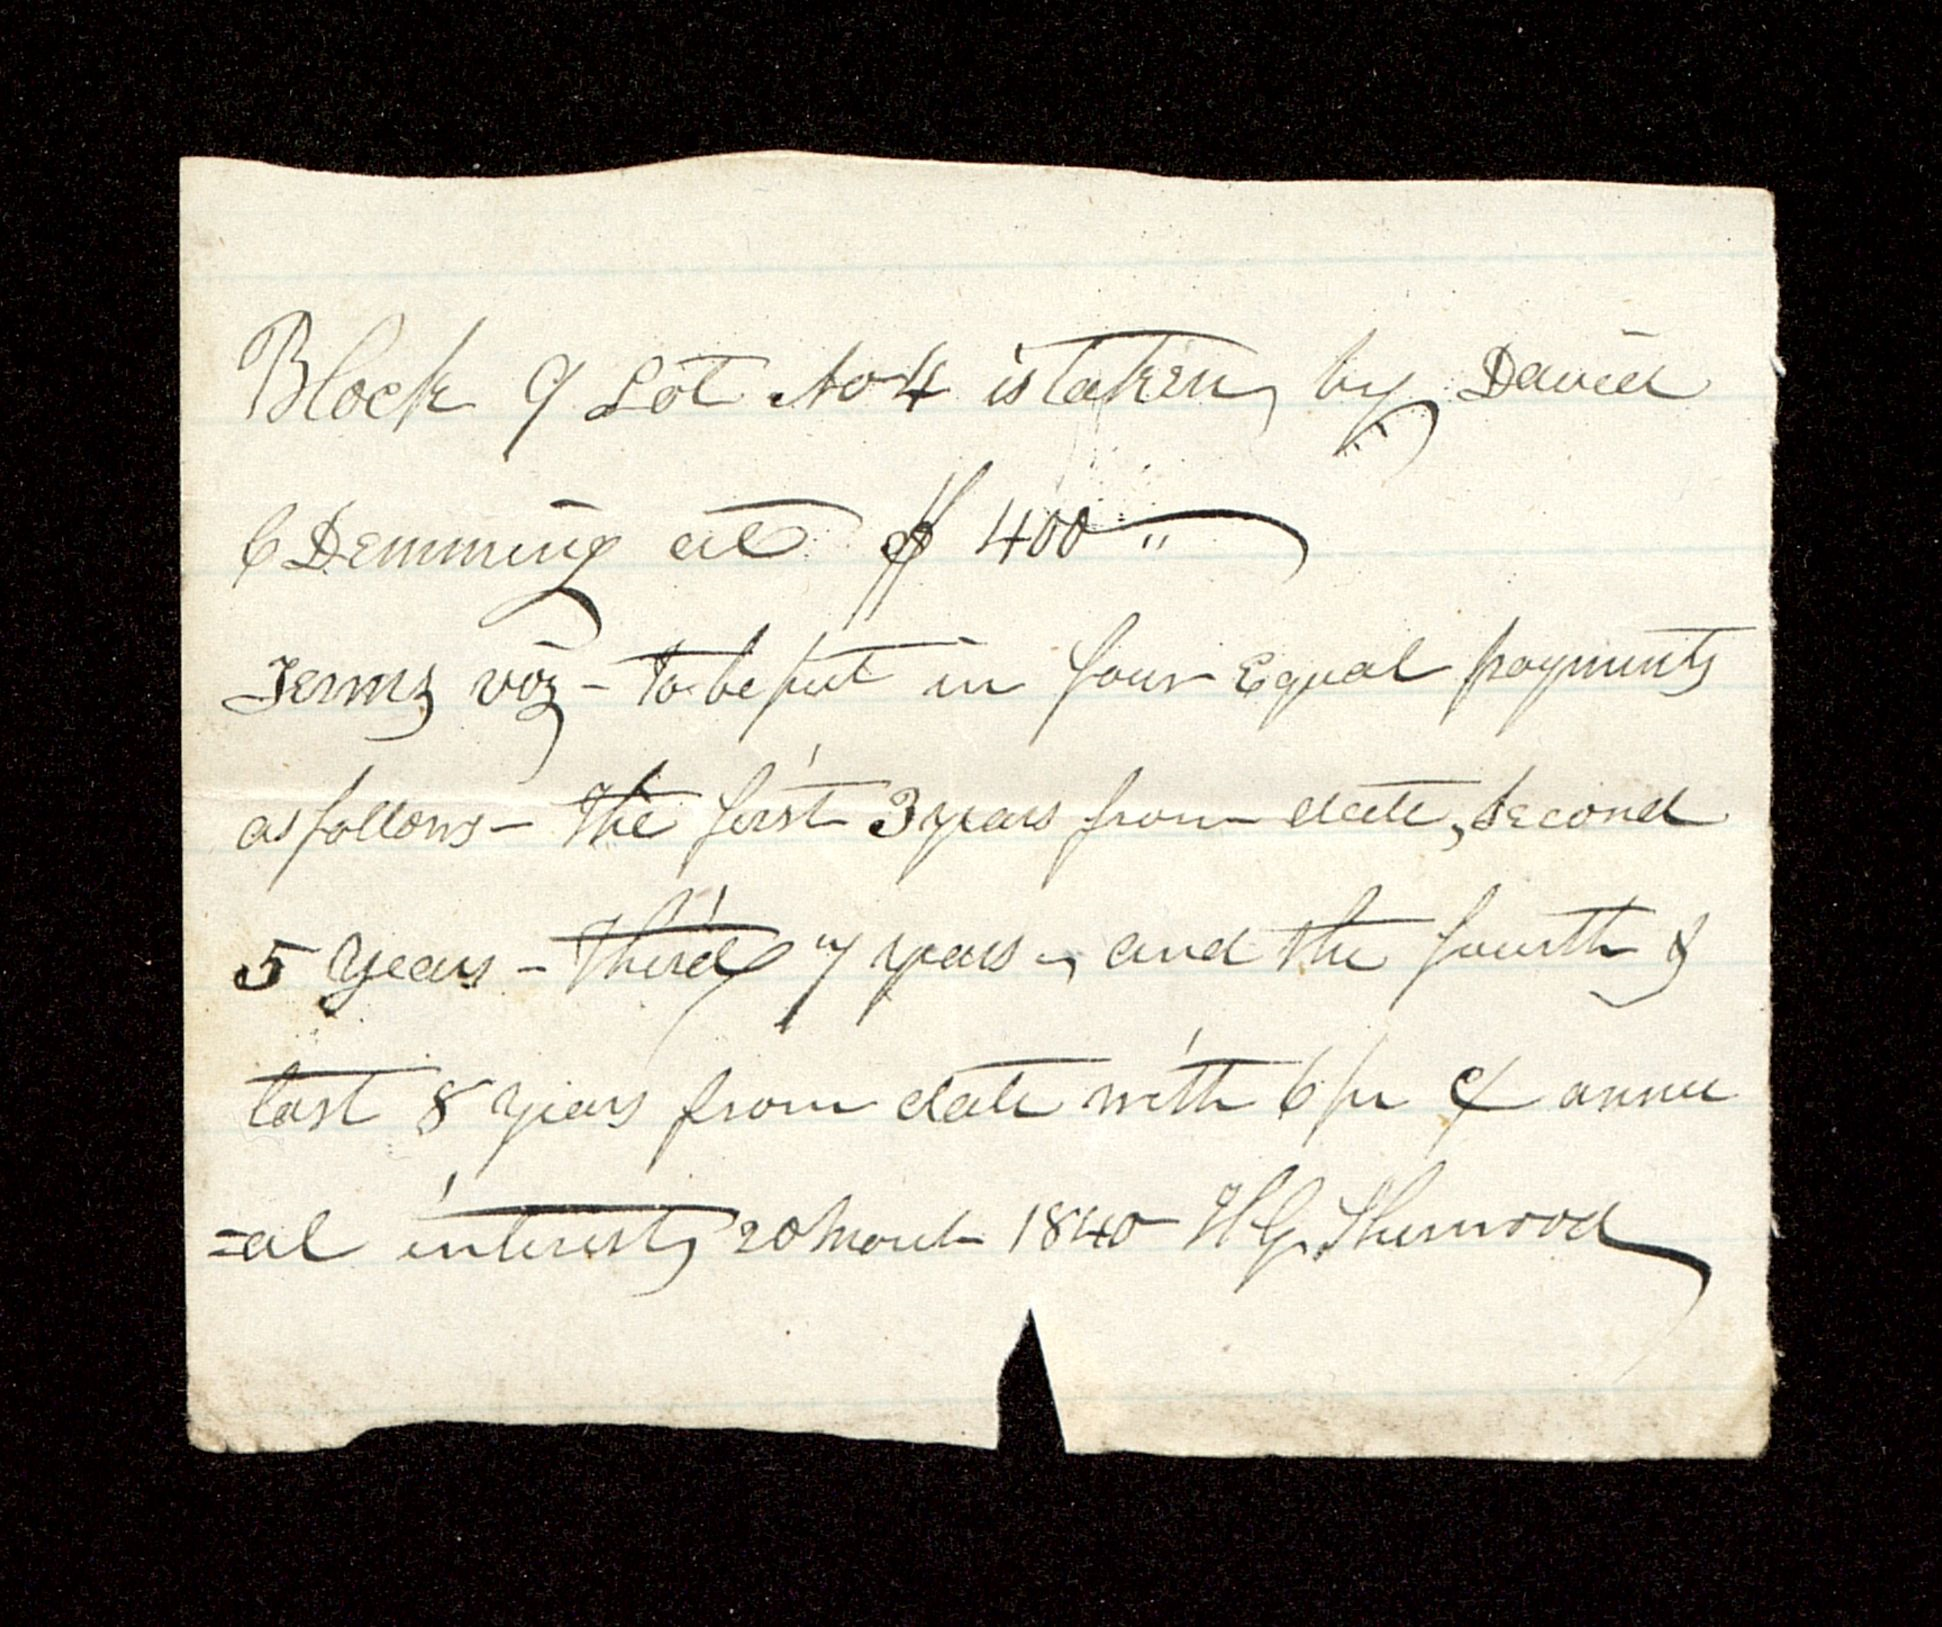 Block 9 Lot No 4 is taken by David
C Demming at $400"
Terms viz - to be put in four Equal payments
as follows - The first 3 years from date, Second
5 years - Third 7 years - and the fourth &
last 8 years from date with 6 pr ct annu
=al interest, 20 March 1840 H G. Sherwood